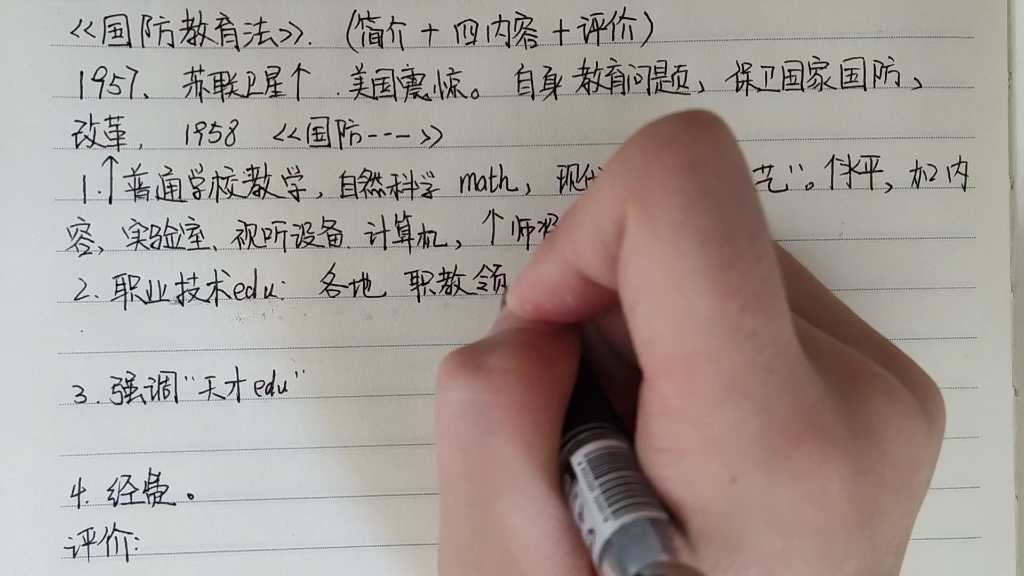 《国防教育法》. (简介+四内容+评价)
1957、苏联卫星↑.美国震惊。自身教育问题，保卫国家国防，
改革，1958《国防----》
1.↑普通学校教学，自然科学 math，现 艺"。个水平，加内
容，实验室、视听设备、计算机，个师
2. 职业技术edu: 各地 职教领
3. 强调"天才edu"
4. 经费。
评价: